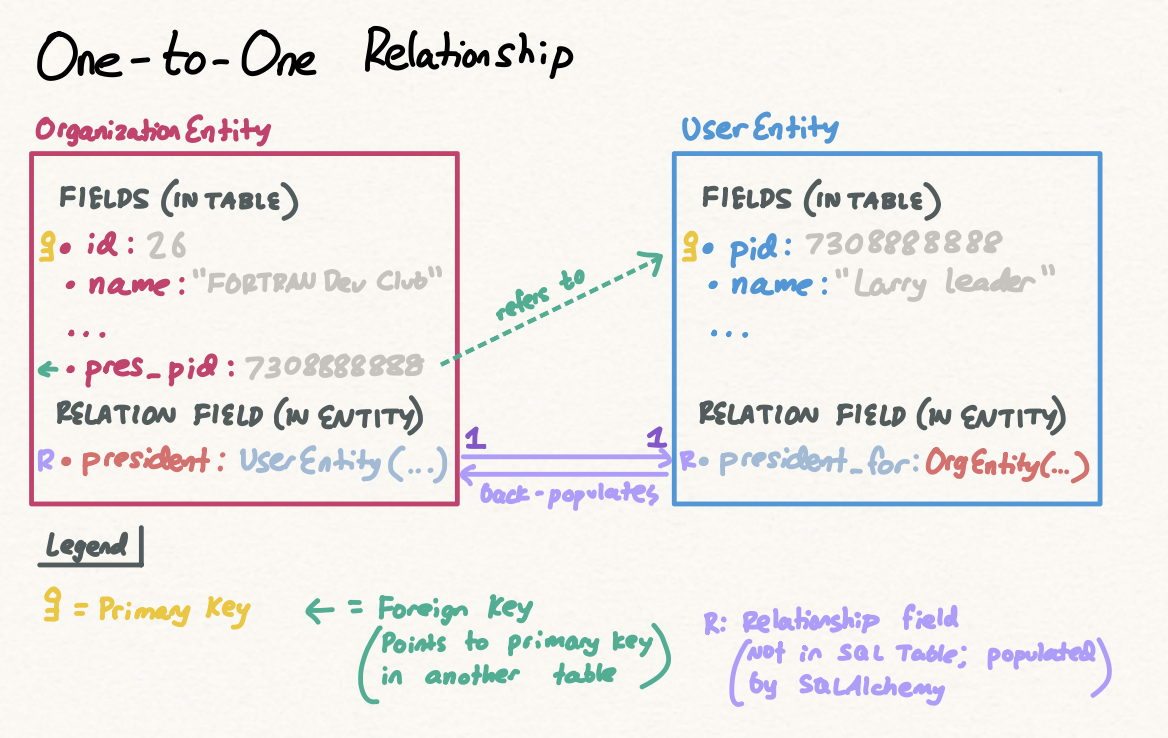 One-to-One Relationship
Organization Entity
FIELDS (IN TABLE)
• id: 26
• name: "FORTRAN Dev Club"
...
← • pres_pid: 7308888888
RELATION FIELD (IN ENTITY)
R • president: UserEntity(...)
refers to
1 1
back-populates
User Entity
FIELDS (IN TABLE)
• pid: 7308888888
• name: "Larry Leader"
...
RELATION FIELD (IN ENTITY)
R • president_for: OrgEntity(...)
Legend
= Primary Key
← = Foreign Key
(Points to primary key
in another table)
R: Relationship field
(Not in SQL Table; populated
by SQLAlchemy)